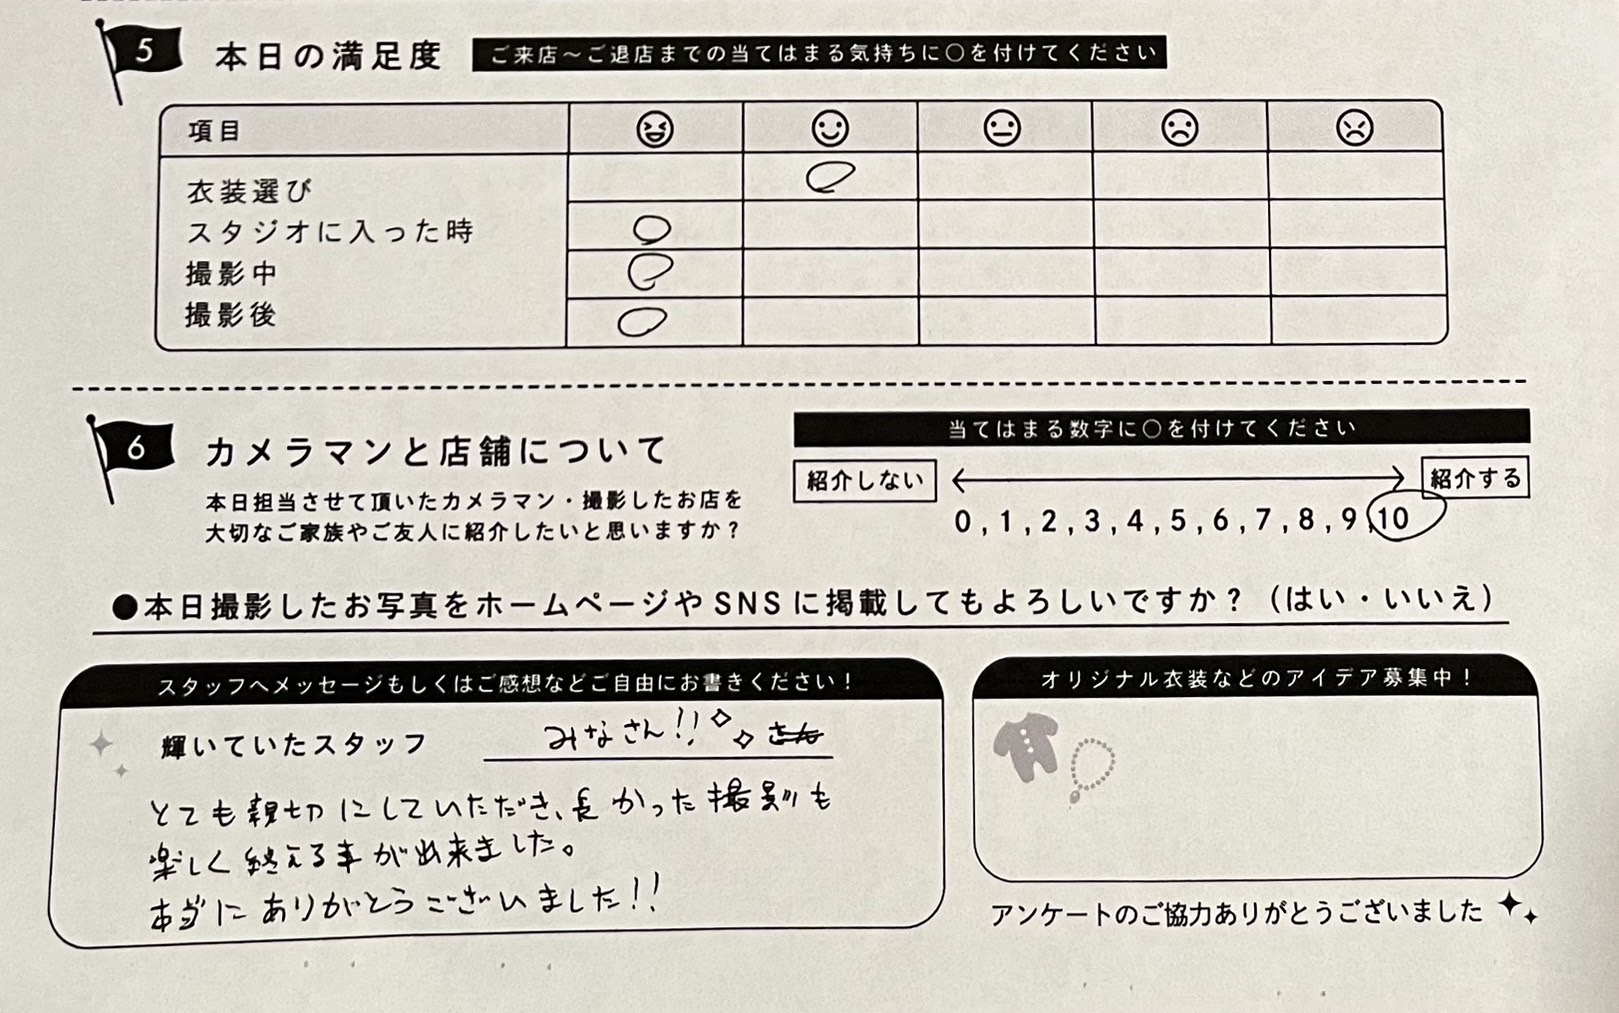 5 本日の満足度 ご来店～ご退店までの当てはまる気持ちに○を付けてください
項目
衣装選び
スタジオに入った時
撮影中
撮影後
6 カメラマンと店舗について
本日担当させて頂いたカメラマン・撮影したお店を
大切なご家族やご友人に紹介したいと思いますか？
当てはまる数字に○を付けてください
紹介しない 紹介する
0,1,2,3,4,5,6,7,8,9,10
●本日撮影したお写真をホームページやSNSに掲載してもよろしいですか？（はい・いいえ）
スタッフへメッセージもしくはご感想などご自由にお書きください！
輝いていたスタッフ みなさん!! さん
とても親切にしていただき、長かった撮影も
楽しく終える事が出来ました。
本当にありがとうございました!!
オリジナル衣装などのアイデア募集中！
アンケートのご協力ありがとうございました